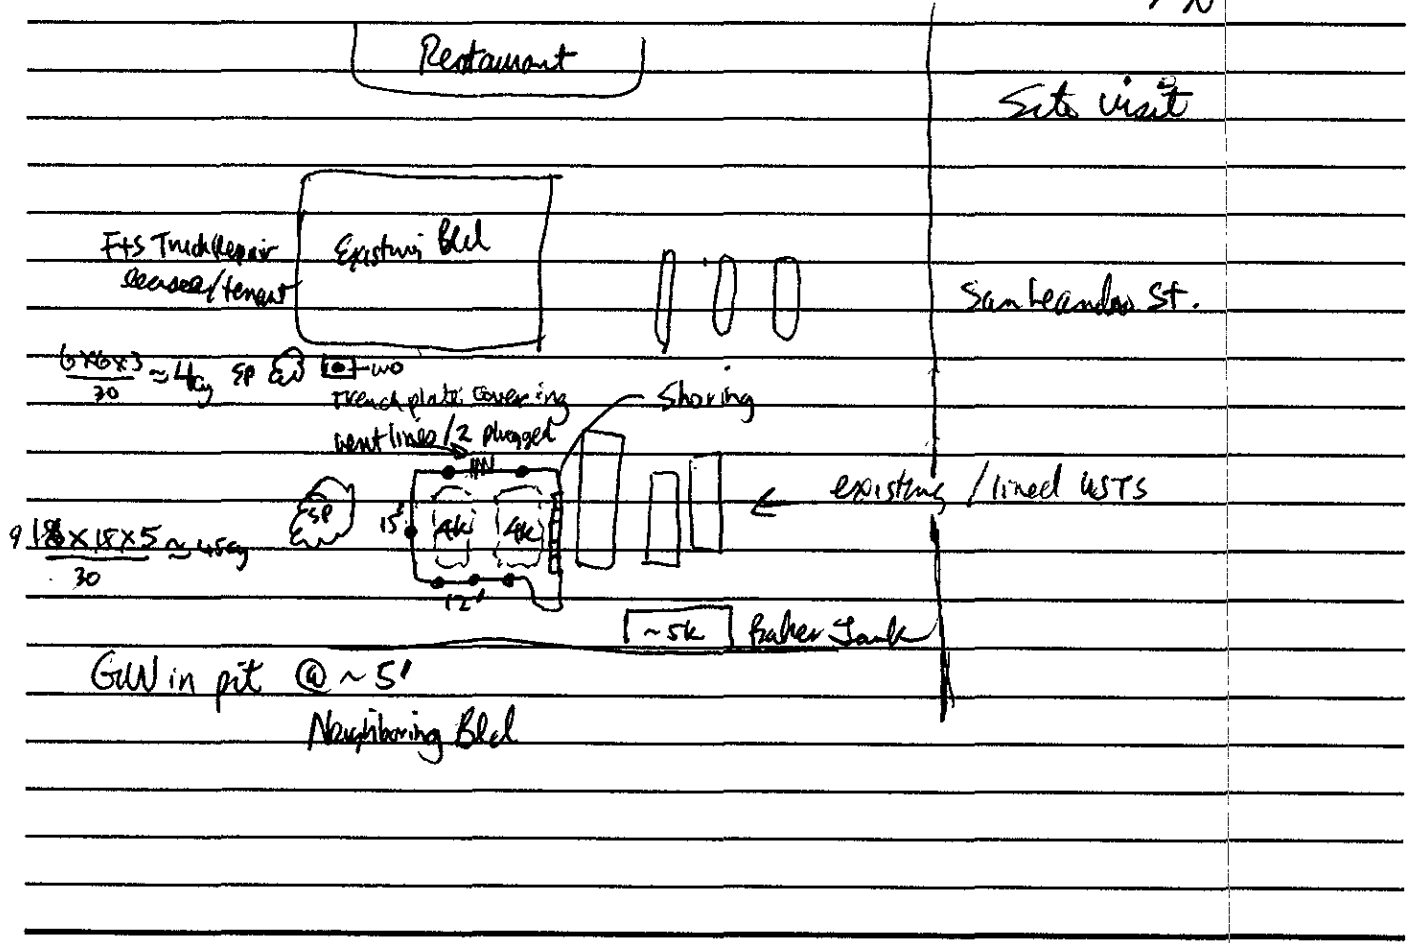 Restaurant
Site visit
F+S Truck Repair
lessee/tenant
Existing Bld
San Leandro St.
6x6x3
30
≈ 4cy
SP
WO
Trench plate covering
vent lines/2 plugged
Shoring
existing / lined USTS
SP
15'
4k
4k
18x5
30
≈ 45cy
12'
~5k
Baker Tank
GW in pit @ ~5'
Neighboring Bld